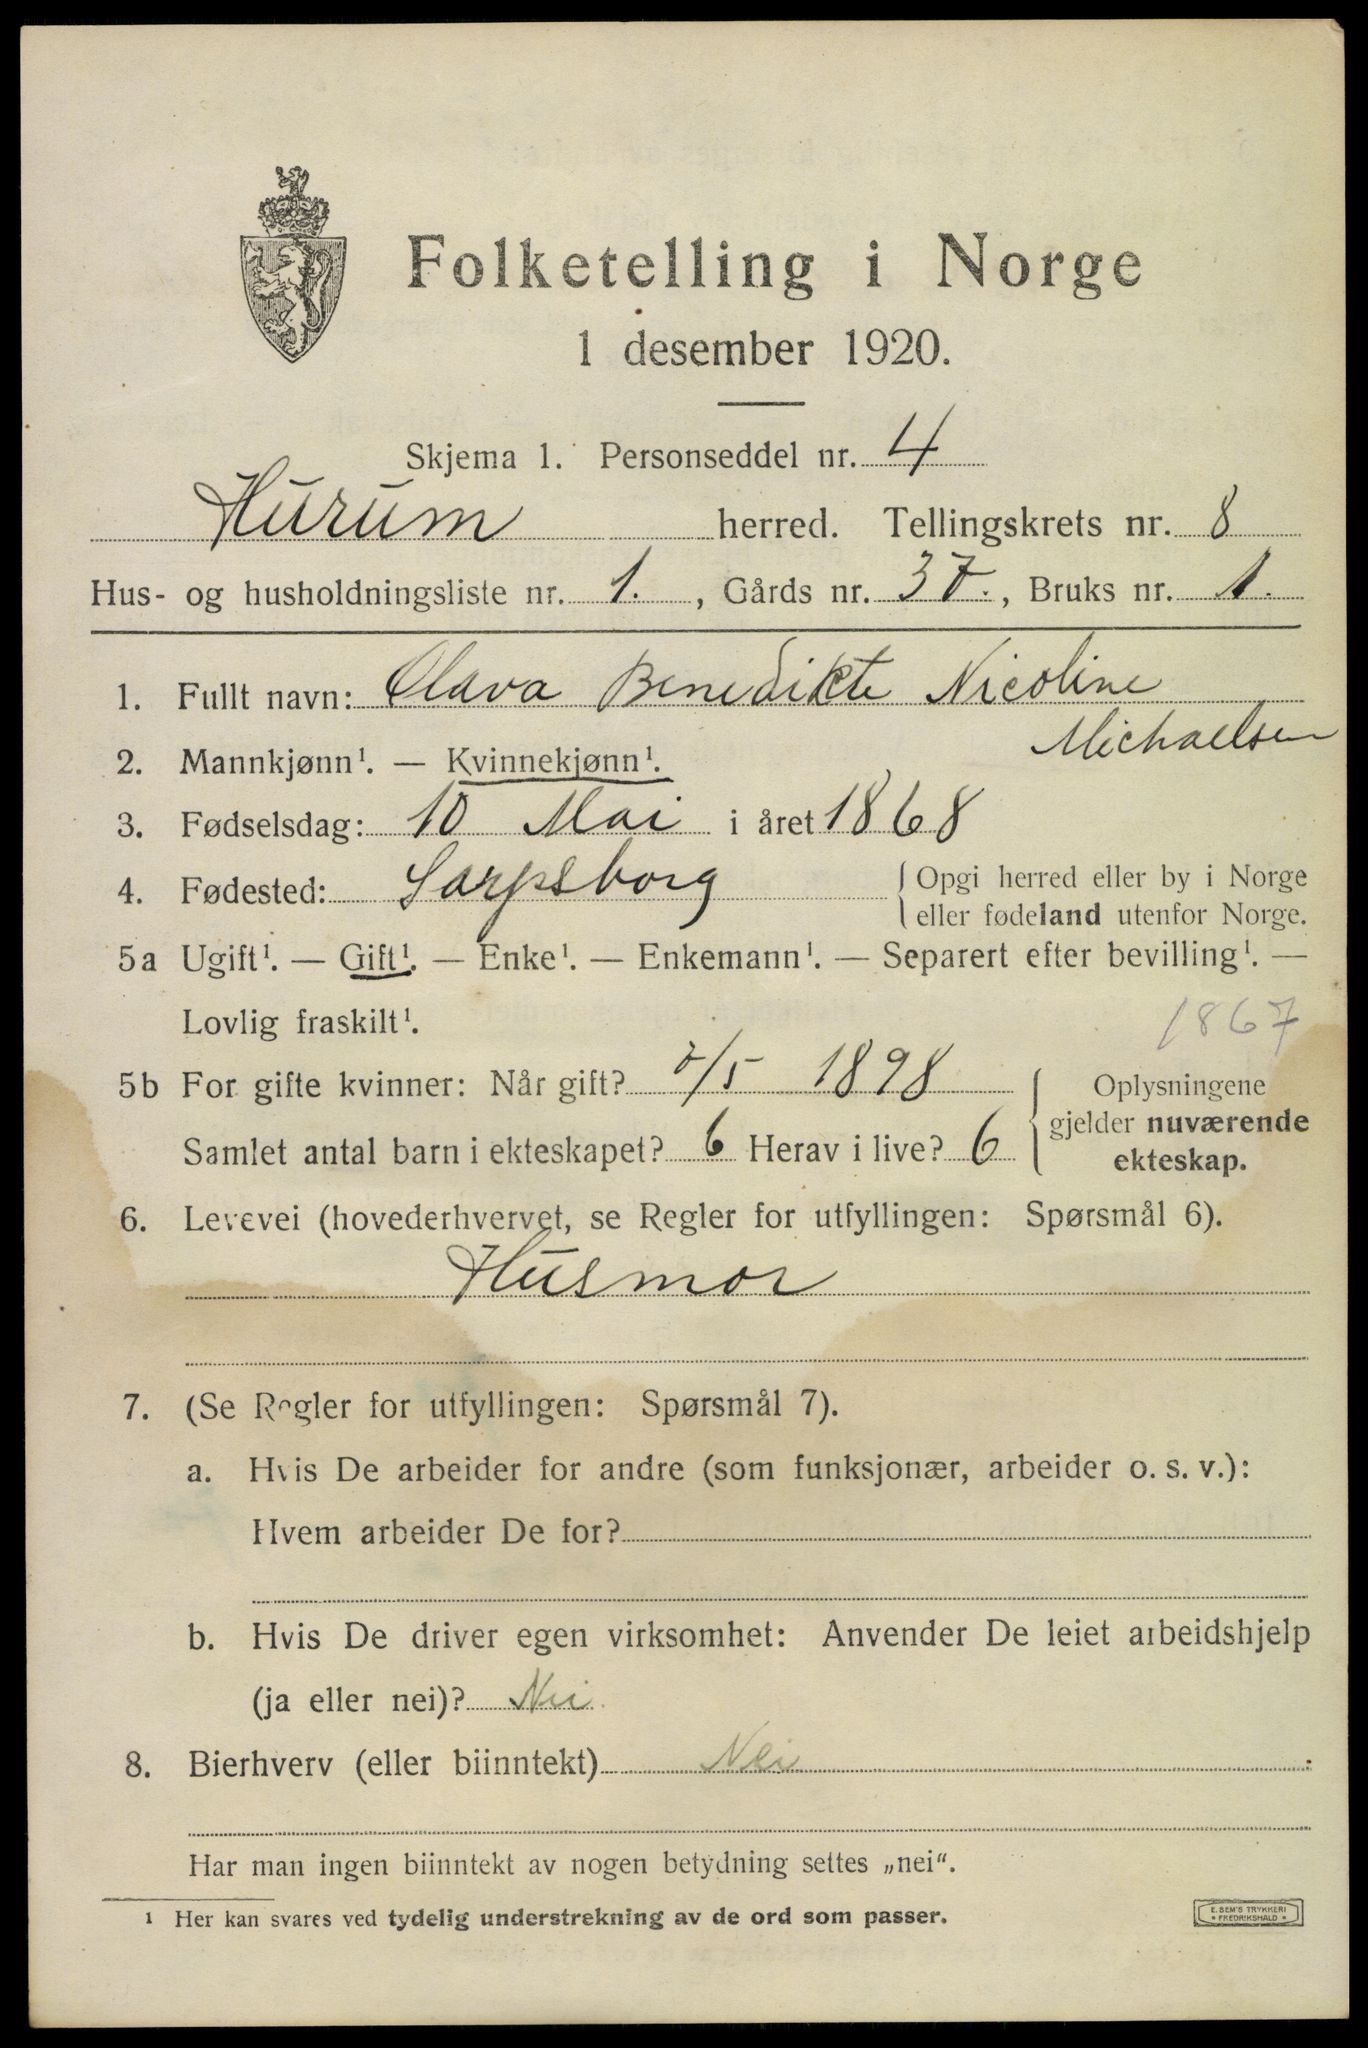 Folketelling i Norge
1 desember 1920.
Skjema 1. Personseddel nr. 4
Hurum herred. Tellingskrets nr. 8
Hus- og husholdningsliste nr. 1. , Gårds nr. 37. , Bruks nr. 1.
1. Fullt navn: Olava Benedikte Nicoline
Michaelsen
2. Mannkjønn¹. — Kvinnekjønn¹.
3. Fødselsdag: 10 Mai i året 1868
4. Fødested: Sarpsborg { Opgi herred eller by i Norge
eller fødeland utenfor Norge.
5a Ugift¹. — Gift¹. — Enke¹. — Enkemann¹. — Separert efter bevilling¹. —
Lovlig fraskilt¹.
1867
5b For gifte kvinner: Når gift? /5 1898
Samlet antal barn i ekteskapet? 6 Herav i live? 6
{ Oplysningene
gjelder nuværende
ekteskap.
6. Levevei (hovederhvervet, se Regler for utfyllingen: Spørsmål 6).
Husmor
7. (Se Regler for utfyllingen: Spørsmål 7).
a. Hvis De arbeider for andre (som funksjonær, arbeider o. s. v.):
Hvem arbeider De for?
b. Hvis De driver egen virksomhet: Anvender De leiet arbeidshjelp
(ja eller nei)? Nei.
8. Bierhverv (eller biinntekt) Nei
Har man ingen biinntekt av nogen betydning settes „nei“.
¹ Her kan svares ved tydelig understrekning av de ord som passer.
E. SEM'S TRYKKERI
* FREDRIKSHALD *